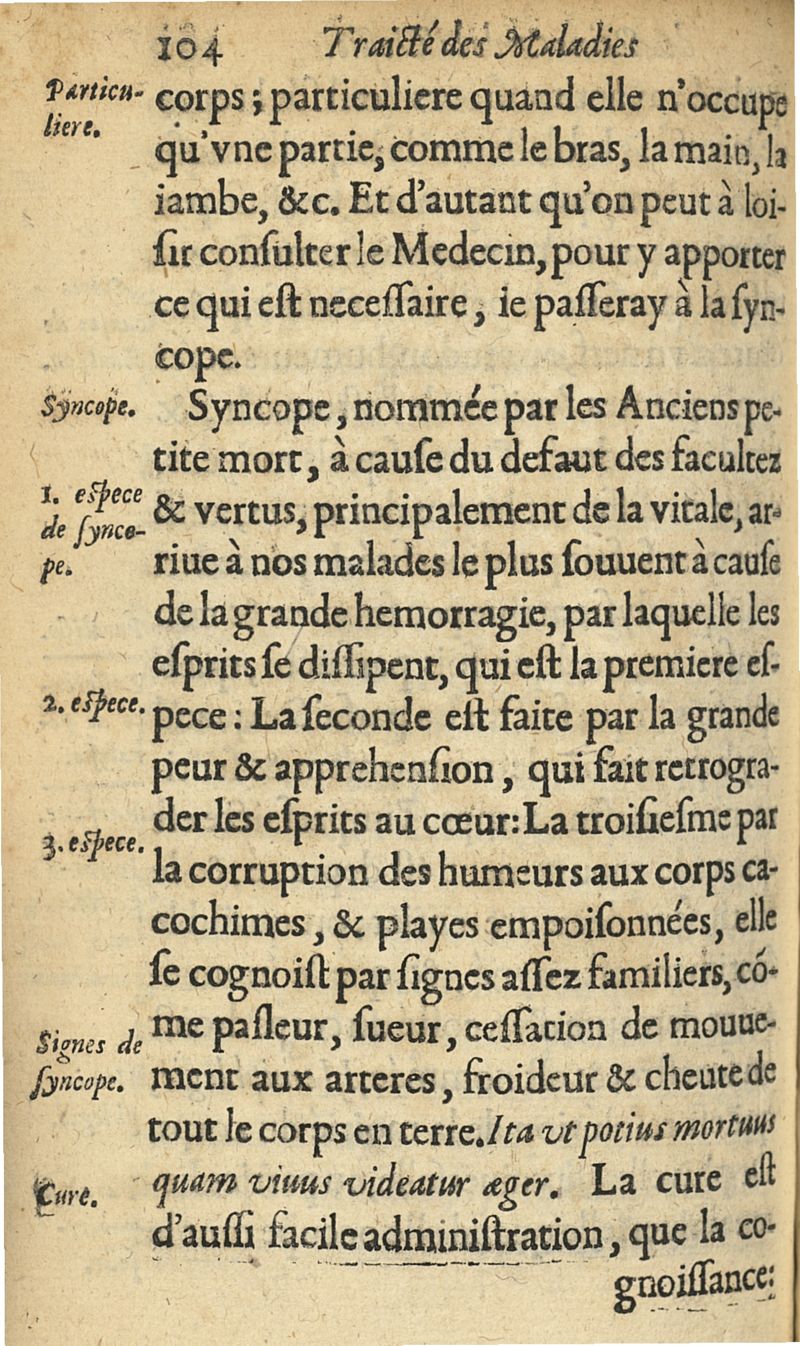 104 Traicté des Maladies
Particu-
liere.
corps ; particuliere quand elle n'occupe
qu'vne partie, comme le bras, la main, la
iambe, &c. Et d'autant qu'on peut à loi-
ſir conſulter le Medecin, pour y apporter
ce qui eſt neceſſaire, ie paſſeray à la ſyn-
cope.
Syncope.
Syncope, nommée par les Anciens pe-
tite mort, à cauſe du defaut des facultez
1. eſpece
de ſynco-
pe.
& vertus, principalement de la vitale, ar-
riue à nos malades le plus ſouuent à cauſe
de la grande hemorragie, par laquelle les
eſprits ſe diſſipent, qui eſt la premiere eſ-
2. eſpece.
pece : La ſeconde eſt faite par la grande
peur & apprehenſion, qui fait retrogra-
der les eſprits au cœur: La troiſieſme par
3. eſpece.
la corruption des humeurs aux corps ca-
cochimes, & playes empoiſonnées, elle
ſe cognoiſt par ſignes aſſez familiers, cõ-
me paſleur, ſueur, ceſſation de mouue-
Signes de
ſyncope.
ment aux arteres, froideur & cheute de
tout le corps en terre. Ita vt potius mortuus
quam viuus videatur æger. La cure eſt
Cure.
d'auſſi facile adminiſtration, que la co-
gnoiſſance: